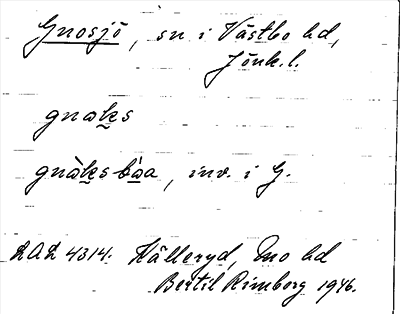 Gnosjö, sn i Västbo hd,
Jönk. l.
gnaks
gnàksbòa, inv. i G.
LAL 4314. Källeryd, Mo hd
Bertil Rimborg 1946.